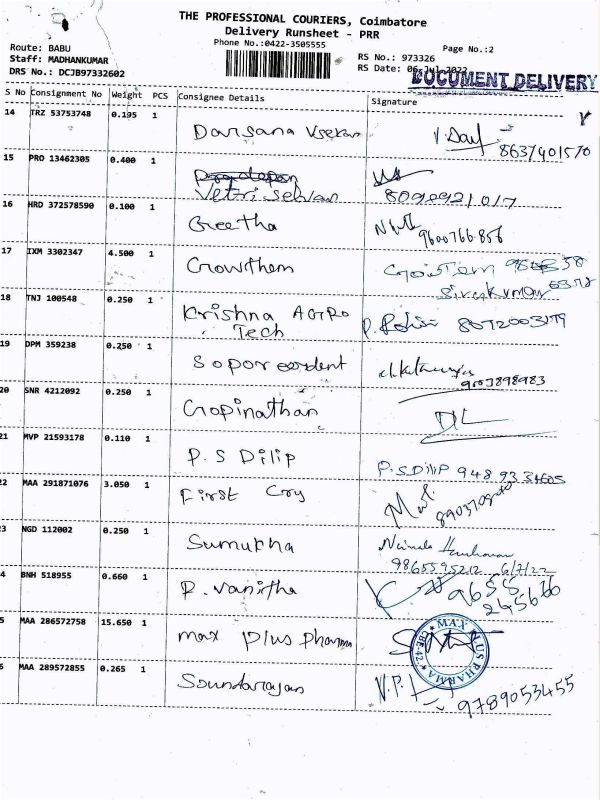 THE PROFESSIONAL COURIERS, Coimbatore
Delivery Runsheet - PRR
Phone No.:0422-3505555
Page No.:2
Route: BABU
Staff: MADHANKUMAR
DRS No.: DCJB97332602
RS No.: 973326
RS Date: 06-Jul-2022
DOCUMENT DELIVERY
S No Consignment No Weight PCS Consignee Details Signature
14 TRZ 53753748 0.195 1
Darsana V. Dar
8637401570
15 PRO 13462305 0.400 1
Vetriselvan
16 HRD 372578590 0.100 1
Geetha
9600766856
17 IXM 3302347 4.500 1
Growthem
Sivakumar
18 TNJ 100548 0.250 1
Krishna AGRO
Tech
19 DPM 359238 0.250 1
20 SNR 4212092 0.250 1
Gopinathan
21 MVP 21593178 0.110 1
P.S Dilip P.S Dilip
22 MAA 291871076 3.050 1
First Cry
23 NGD 112002 0.250 1
Sumukha
9865595212 6/7/22
4 BNH 518955 0.660 1
P. Vanitha 9655
245666
5 MAA 286572758 15.650 1
max plus pharma
MAX PLUS PHARMA CBE-42
6 MAA 289572855 0.265 1
Soundarajan V.P.
9789053455